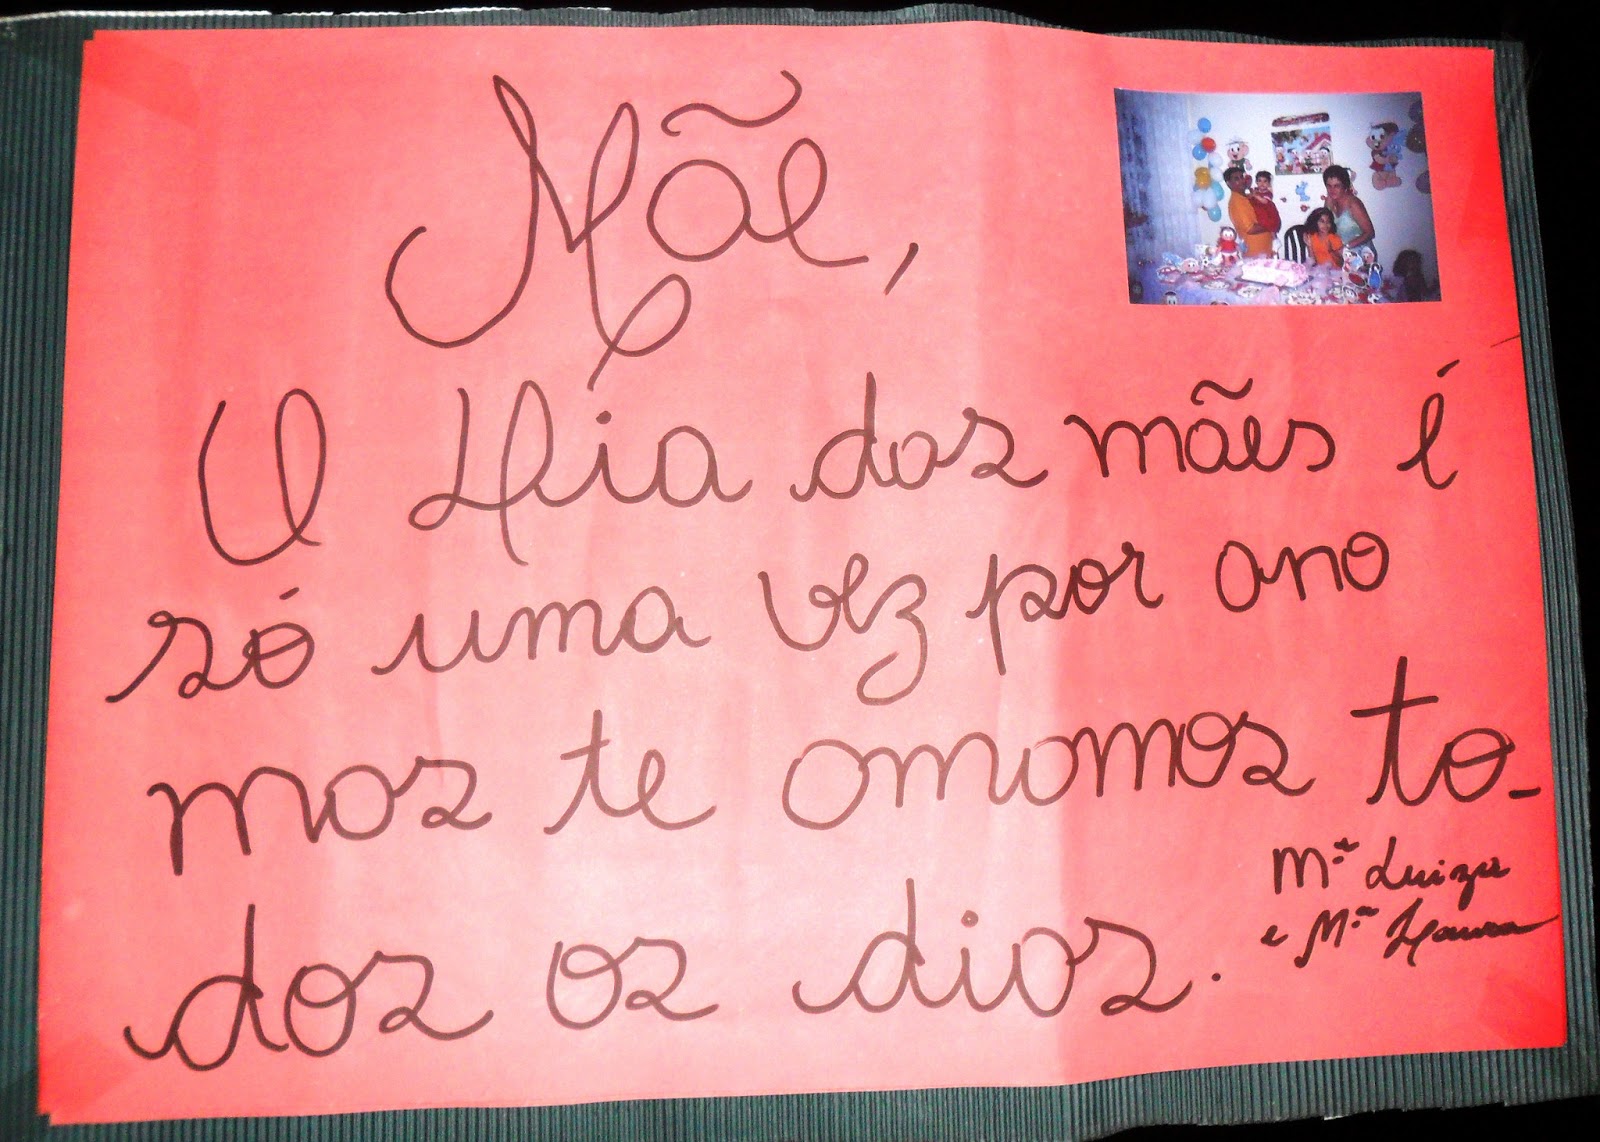 Mãe,
O Dia dos mães é
só uma vez por ano
mas te amamos to-
dos os dias.
Mª Luiza
e Mª Laura